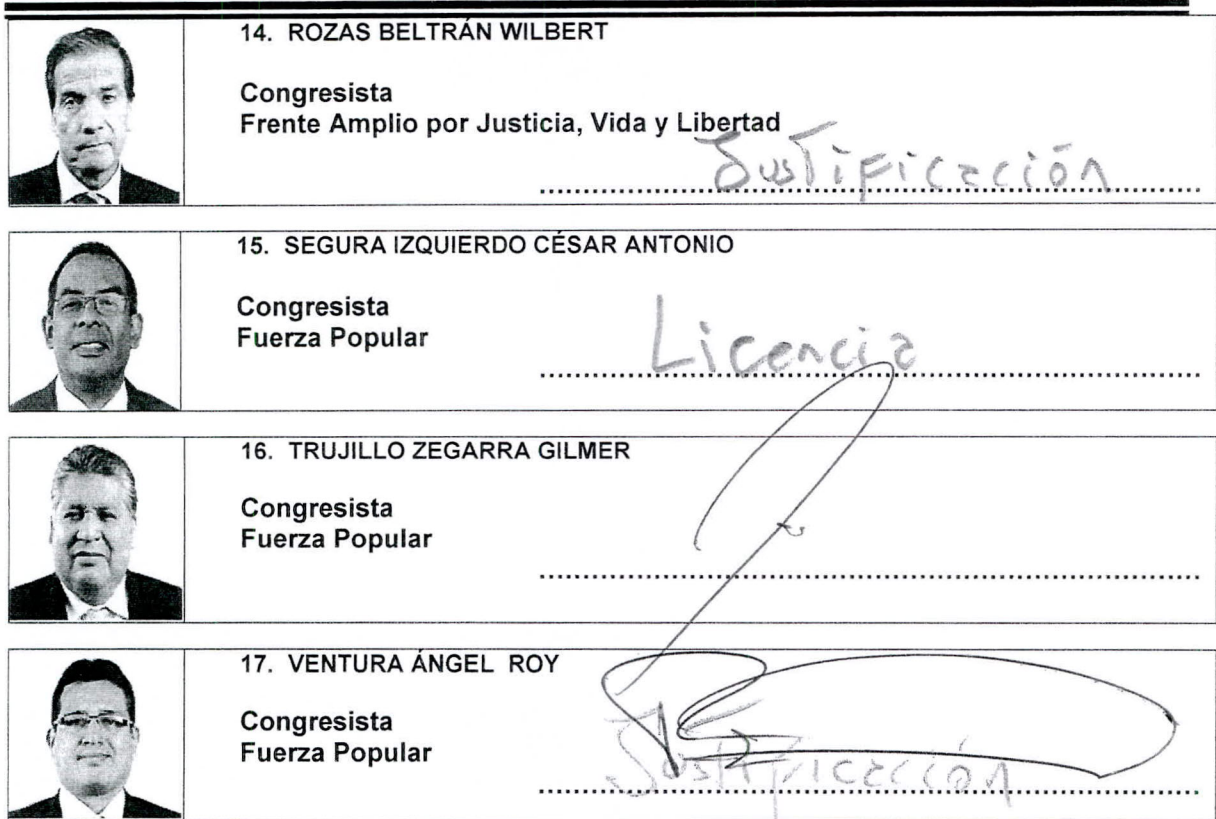 14. ROZAS BELTRÁN WILBERT
Congresista
Frente Amplio por Justicia, Vida y Libertad
Justificación
15. SEGURA IZQUIERDO CÉSAR ANTONIO
Congresista
Fuerza Popular
Licencia
16. TRUJILLO ZEGARRA GILMER
Congresista
Fuerza Popular
17. VENTURA ÁNGEL ROY
Congresista
Fuerza Popular
Justificación